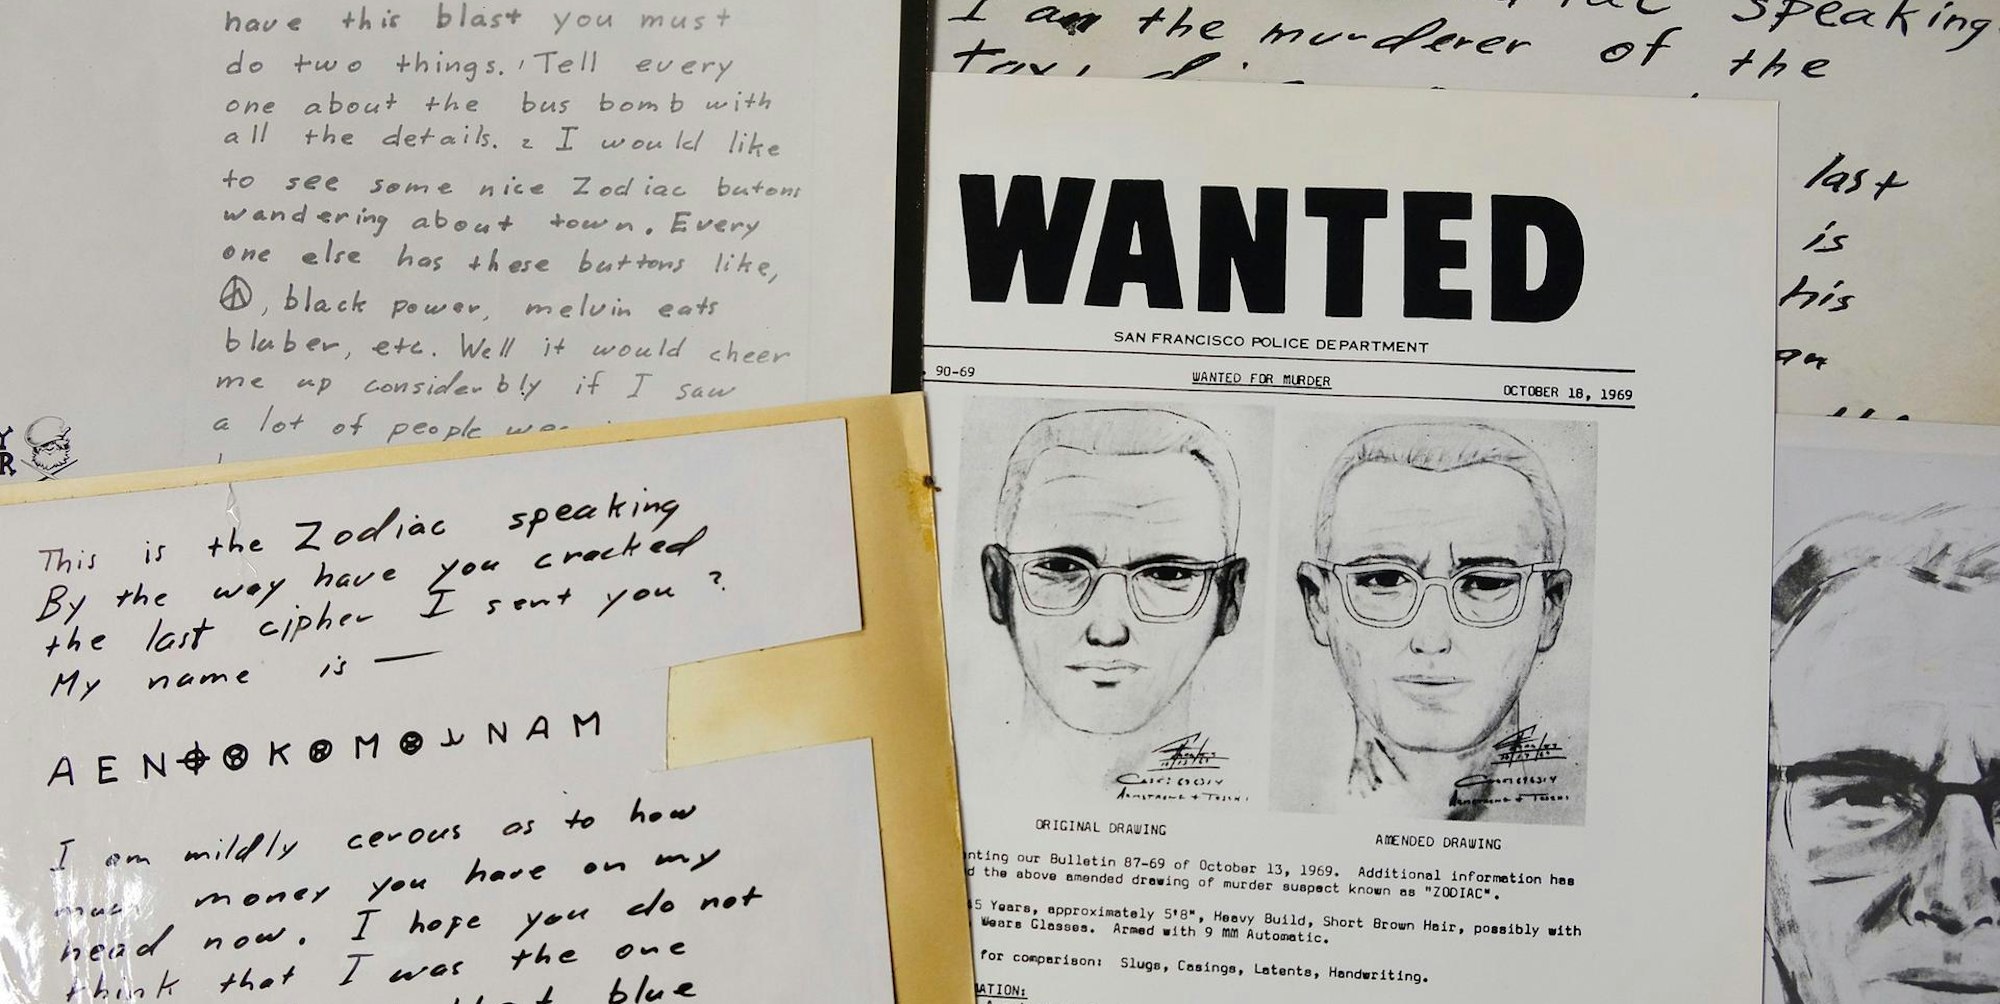 have this blast you must
do two things. 1 Tell every
one about the bus bomb with
all the details. 2 I would like
to see some nice Zodiac butons
wandering about town. Every
one else has these buttons like,
☮, black power, melvin eats
bluber, etc. Well it would cheer
me up considerbly if I saw
a lot of people
Y
R
This is the Zodiac speaking
By the way have you cracked
the last cipher I sent you?
My name is —
A E N ⌖ ⊗ K ⊗ M ⊗ ⅃ N A M
I am mildly cerous as to how
money you have on my
head now. I hope you do not
think that I was the one
blue
speaking
I am the murderer of the
last
is
his
an
WANTED
SAN FRANCISCO POLICE DEPARTMENT
90-69 WANTED FOR MURDER OCTOBER 18, 1969
ORIGINAL DRAWING AMENDED DRAWING
nting our Bulletin 87-69 of October 13, 1969. Additional information has
d the above amended drawing of murder suspect known as "ZODIAC".
5 Years, approximately 5'8", Heavy Build, Short Brown Hair, possibly with
Wears Glasses. Armed with 9 MM Automatic.
for comparison: Slugs, Casings, Latents, Handwriting.
ATION: